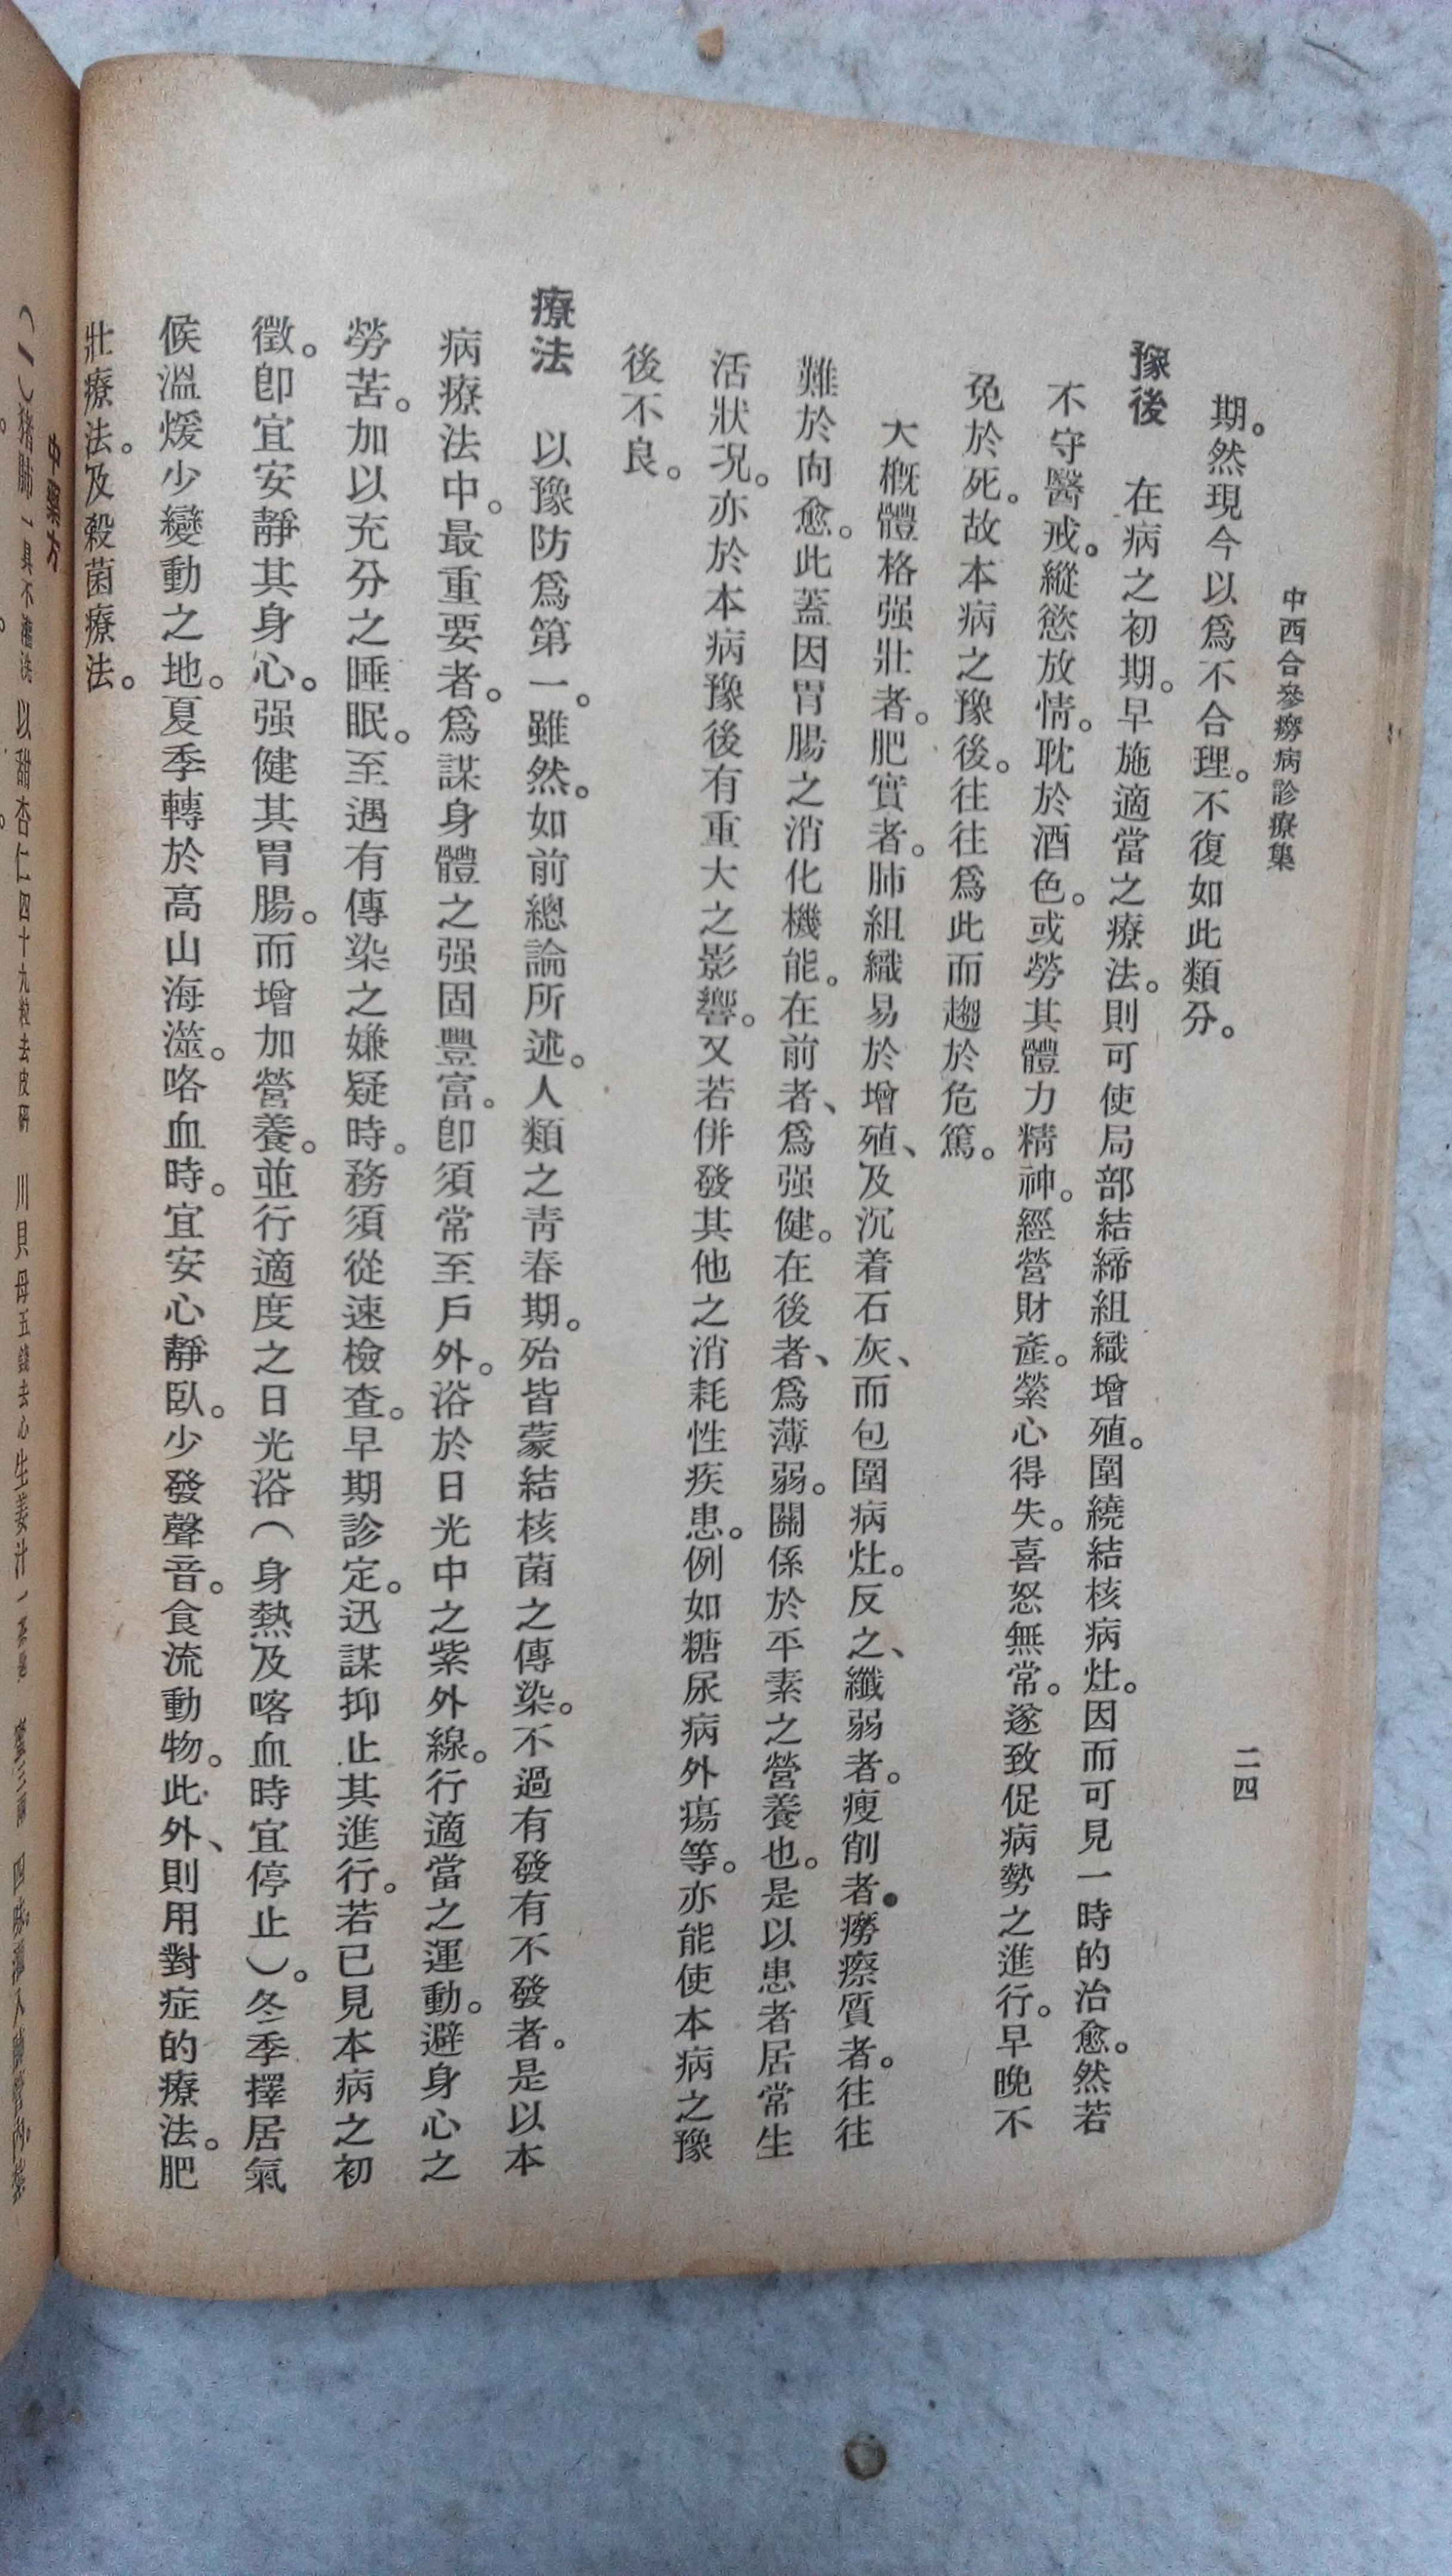 中西合參癆病診療集
二四
期。然現今以爲不合理。不復如此類分。
豫後　在病之初期。早施適當之療法。則可使局部結締組織增殖。圍繞結核病灶。因而可見一時的治愈。然若
不守醫戒。縱慾放情。耽於酒色。或勞其體力精神。經營財產。縈心得失。喜怒無常。遂致促病勢之進行。早晚不
免於死。故本病之豫後。往往爲此而趨於危篤。
大概體格强壯者。肥實者。肺組織易於增殖、及沉着石灰、而包圍病灶。反之、纖弱者。瘦削者。癆瘵質者。往往
難於向愈。此蓋因胃腸之消化機能。在前者、爲强健。在後者、爲薄弱。關係於平素之營養也。是以患者居常生
活狀況。亦於本病豫後有重大之影響。又若併發其他之消耗性疾患。例如糖尿病外瘍等。亦能使本病之豫
後不良。
療法　以豫防爲第一。雖然。如前總論所述。人類之靑春期。殆皆蒙結核菌之傳染。不過有發有不發者。是以本
病療法中。最重要者。爲謀身體之强固豐富。卽須常至戶外。浴於日光中之紫外線。行適當之運動。避身心之
勞苦。加以充分之睡眠。至遇有傳染之嫌疑時。務須從速檢查。早期診定。迅謀抑止其進行。若已見本病之初
徵。卽宜安靜其身心。强健其胃腸。而增加營養。並行適度之日光浴（身熱及喀血時宜停止）。冬季擇居氣
候溫煖少變動之地。夏季轉於高山海澨。咯血時。宜安心靜臥。少發聲音。食流動物。此外、則用對症的療法。肥
壯療法。及殺菌療法。
中藥方
（一）豬肺一具不 以甜杏仁四十九粒去皮研　川貝母五錢去心生姜汁一　蜜三兩　四